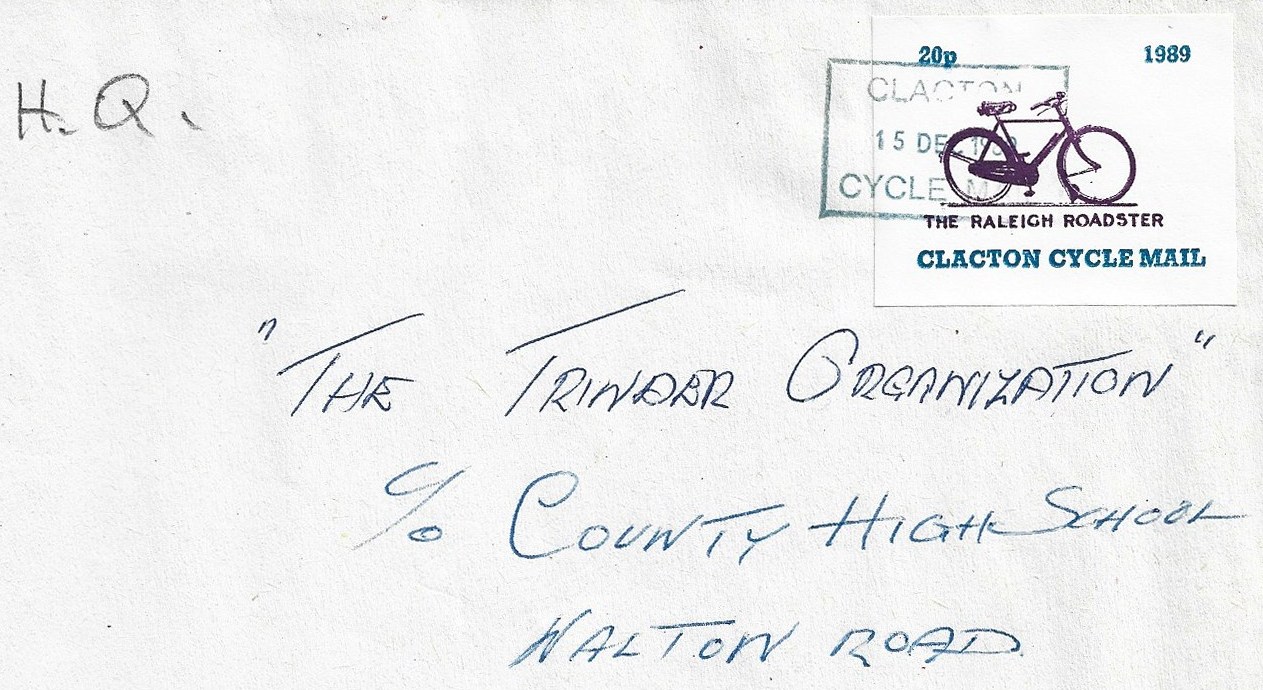 H.Q.
20p 1989
CLACTON
15 DEC 1989
CYCLE M
THE RALEIGH ROADSTER
CLACTON CYCLE MAIL
"THE TRINDER ORGANIZATION"
c/o COUNTY HIGH SCHOOL
WALTON ROAD